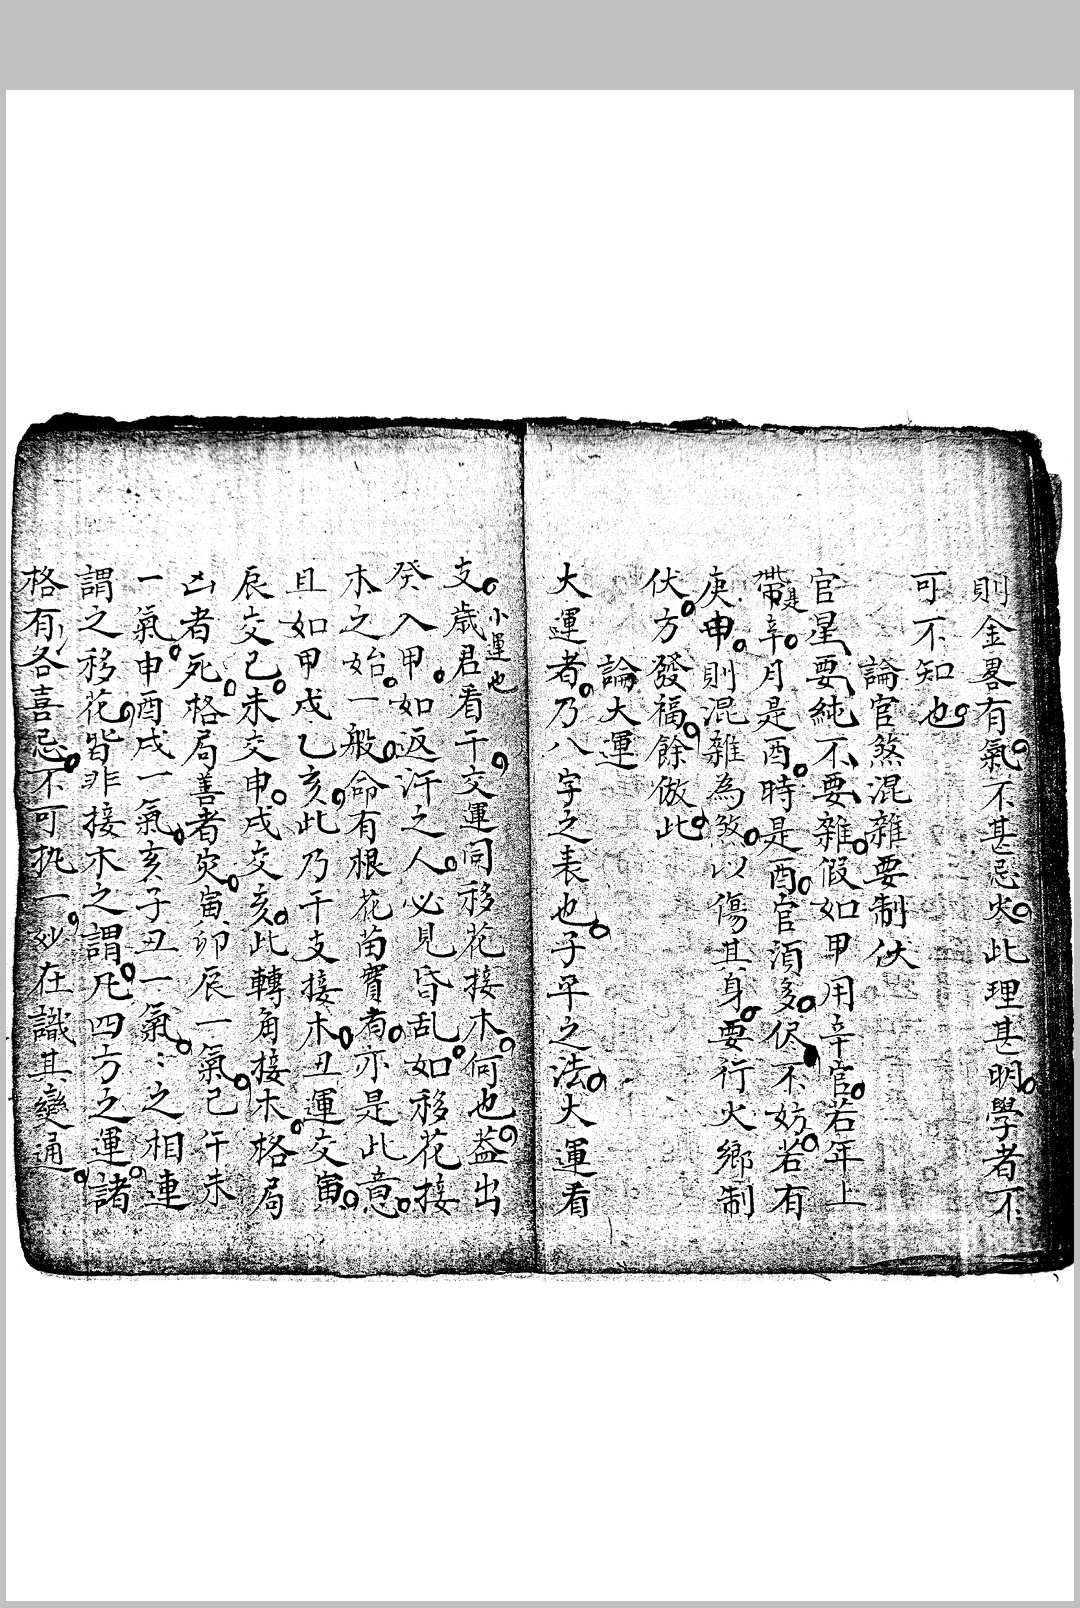 則金畧有氣不甚忌火此理甚明學者不
可不知也
論官煞混雜要制伏
官星要純不要雜假如甲用辛官若年上
帶是辛月是酉時是酉官須多伏不妨若有
庚申則混雜為煞以傷其身要行火鄉制
伏方發福餘倣此
論大運
大運者乃八字之表也子平之法大運看
支歲君看干交運同移花接木何也葢出
小運也
癸入甲如返汗之人必見昏乱如移花接
木之始一般命有根花苗實者亦是此意
且如甲戌乙亥此乃干支接木丑運交寅
辰交巳未交申戌交亥此轉角接木格局
凶者死格局善者灾寅卯辰一氣巳午未
一氣申酉戌一氣亥子丑一氣之相連
謂之移花皆非接木之謂凡四方之運諸
格有各喜忌不可执一妙在識其變通